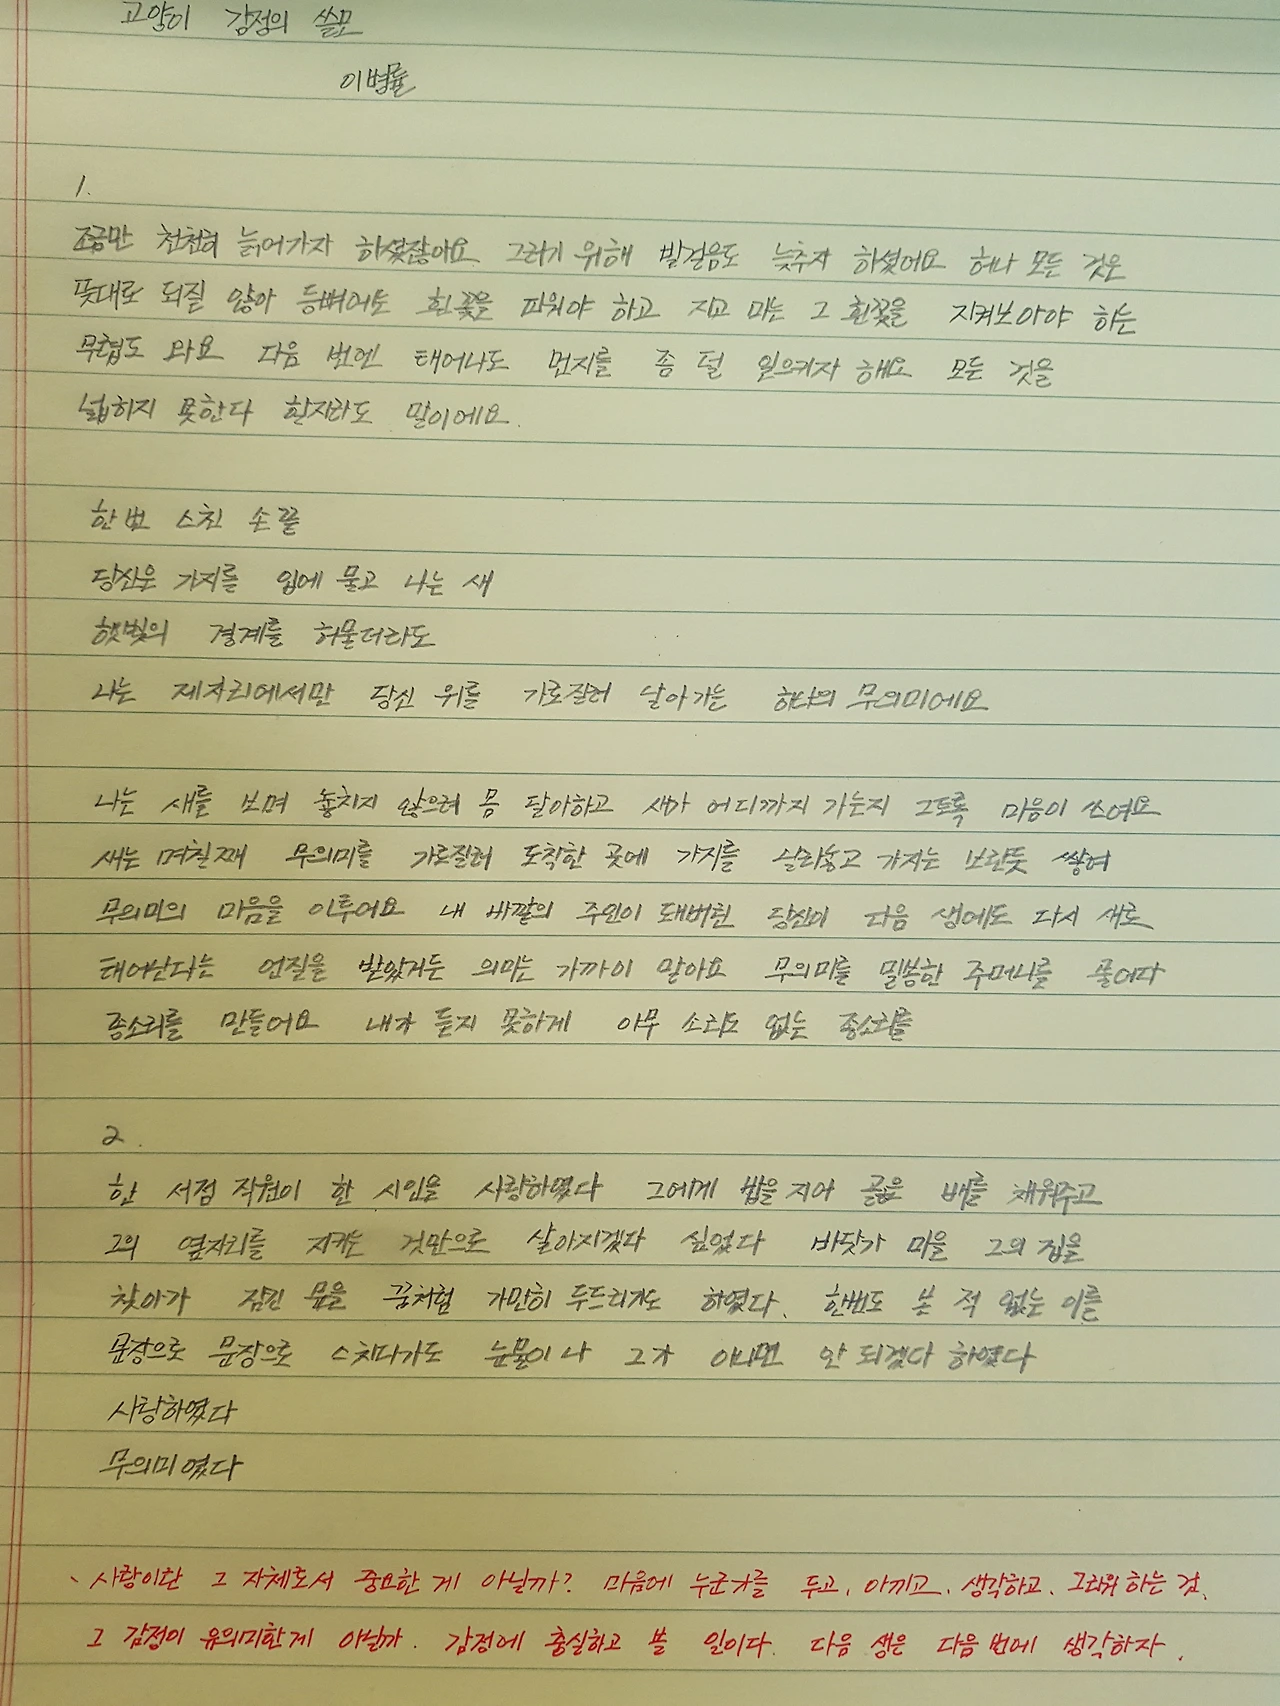 고양이 감정의 쓸모
이병률
1.
조금만 천천히 늙어가자 하셨잖아요 그러기 위해 발걸음도 늦추자 하셨어요 허나 모든 것은
뜻대로 되질 않아 등뼈에도 흰 꽃을 피워야 하고 지고 마는 그 흰 꽃을 지켜보아야 하는
무렵도 와요 다음 번엔 태어나도 먼지를 좀 덜 일으키자 해요 모든 것을
넓히지 못한다 할지라도 말이에요.
한번 스친 손끝
당신은 가지를 입에 물고 나는 새
햇빛의 경계를 허물더라도
나는 제자리에서만 당신 위를 가로질러 날아가는 하나의 무의미예요
나는 새를 보며 놓치지 않으려 몸 달아하고 새가 어디까지 가는지 그토록 마음이 쓰여요
새는 며칠째 무의미를 가로질러 도착한 곳에 가지를 날라놓고 가지는 보란듯 쌓여
무의미의 마음을 이루어요 내 바깥의 주인이 돼버린 당신이 다음 생에도 다시 새로
태어난다는 언질을 받았거든 의미는 가까이 말아요 무의미를 밀봉한 주머니를 풀어다
종소리를 만들어요 내가 듣지 못하게 아무 소리도 없는 종소리를
2.
한 서점 직원이 한 시인을 사랑하였다 그에게 밥을 지어 곯은 배를 채워주고
그의 옆자리를 지키는 것만으로 살아지겠다 싶었다 바닷가 마을 그의 집을
찾아가 잠긴 문을 꿈처럼 가만히 두드리기도 하였다. 한번도 본 적 없는 이를
문장으로 문장으로 스치다가도 눈물이 나 그가 아니면 안 되겠다 하였다
사랑하였다
무의미였다
、사랑이란 그 자체로서 중요한 게 아닐까? 마음에 누군가를 두고, 아끼고, 생각하고, 그리워 하는 것.
그 감정이 유의미한게 아닐까. 감정에 충실하고 볼 일이다. 다음 생은 다음 번에 생각하자.